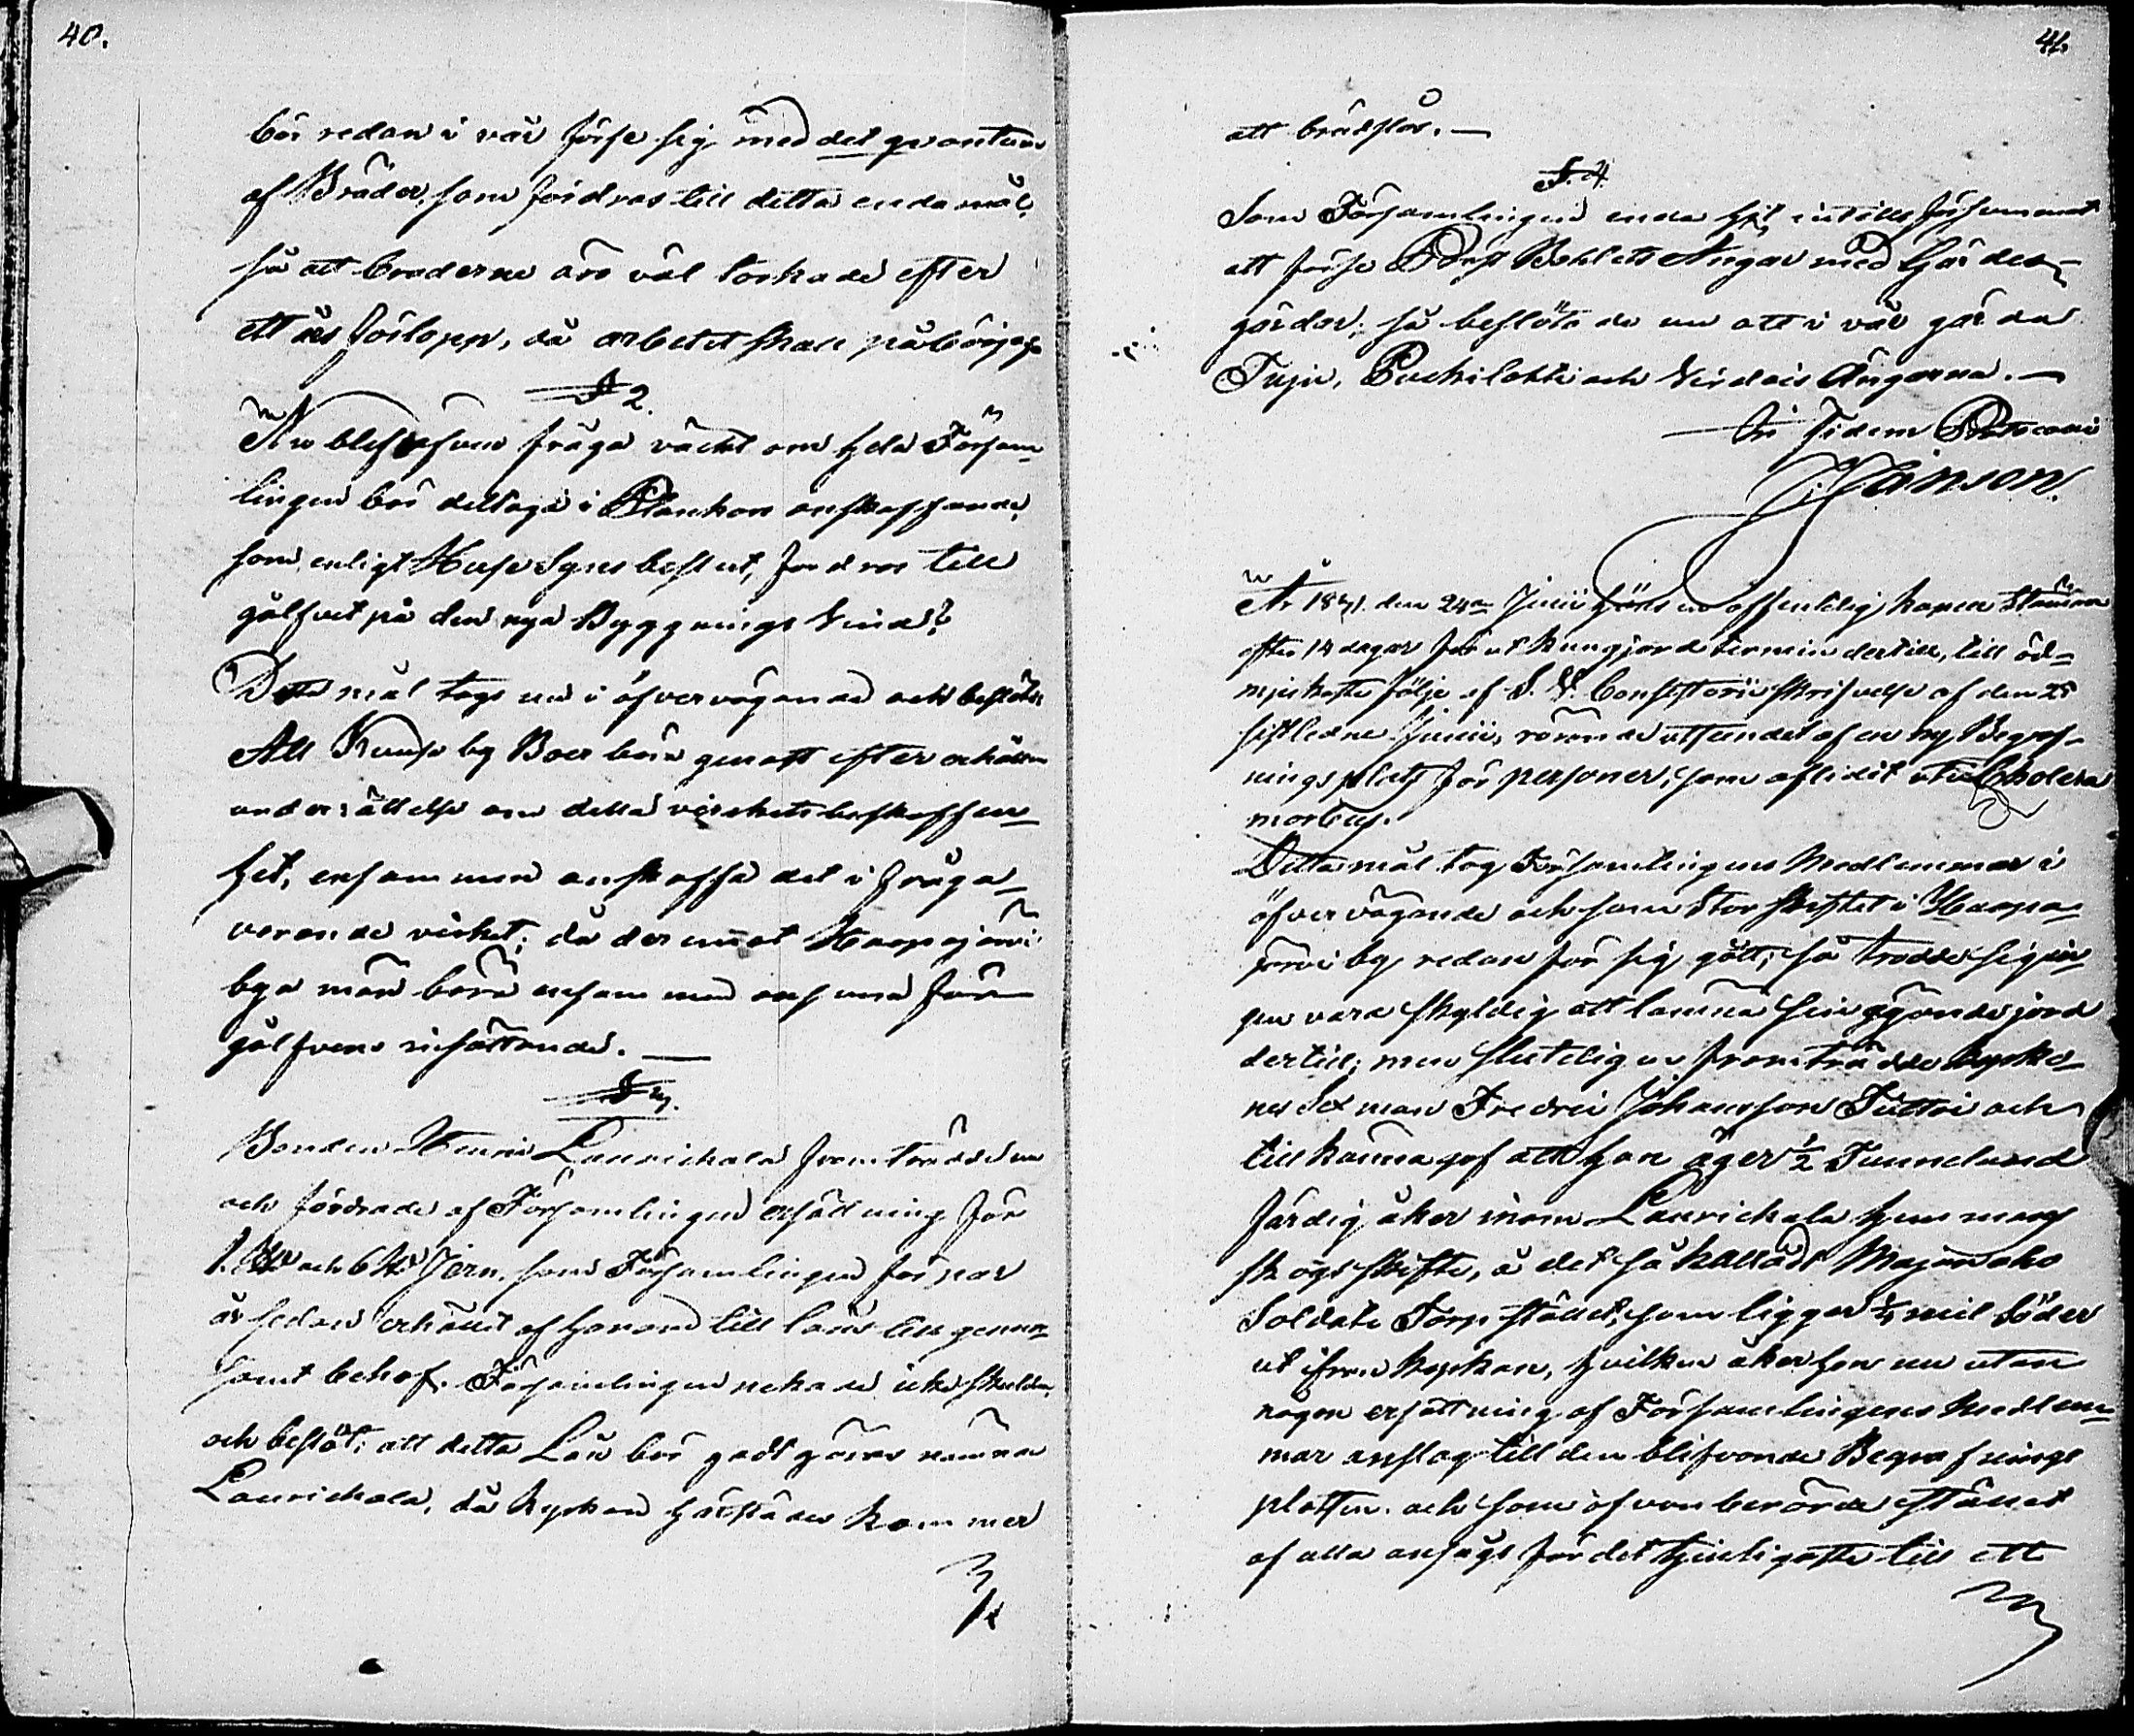 40.
bör redan i vår förse sig med det qvantum
af Bräder, som fordras till detta endamål,
så att bräderne äro väl torkade efter
ett års förlopp, då arbetet skall påbörjas
§ 2.
Nu blef äfven fråga väckt om hela Försam-
lingen bör deltaga i Plankors anskaffande,
som enligt Huse Syns beslut, fordras till
golfvet på den nya Byggnings Vind?
Detta mål togs nu i öfvervägande och beslöts
Att by Boer böra genast efter erhållen
underrättelse om detta virkets beskaffen-
het, ensamma anskaffa det i fråga-
varande virket; då deremot Haapajärvi
bya män böra ensamma ansvara för
golfvens insättande. —
§ 3.
Bonden Henric Laurickala framträdde nu
och fordrade af Församlingen ersättning för
1 och 6 Jern, som Församlingen för par
år sedan erhållit af honom till låns till gemen-
samt behof. Församlingen nekade icke skulden,
och beslöt; att detta Lån bör godtgöras nämnde
Laurickala, då Kyrkan härstädes kommer
41.
att brädslås. —
§. 4.
Som Församlingen ända hit intills försummat
att förse Prest Bohlets Ängar med Gärdes-
gårdar; så beslöto de nu att i vår gärda
och Ängarna. —
In fidem Protocolli
J. Janson.
År 1831. den 24de Junii hölls en offentelig Sockne Stämma
efter 14 dagar förut kungjord termin dertill, till öd-
mjukaste följe af S. V. Consistorii skrifvelse af den 28
sistledne Junii, rörande utseendet af en ny Begraf-
nings plats för personer, som aflidit uti Cholera
morbus.
Detta mål tog Församlingens Medlemmar i
öfvervägande och som Storskiftet i Haapa-
järvi by redan för sig gått; så trodde sig in-
gen vara skyldig att lämna sin egande jord
dertill; men sluteligen framträdde Kyrko-
nes Sexman Fredric Johansson Tuttoi och
tillkänna gaf att han äger 1/2 Tunneland
färdig åker inom Laurickala hemmans
skogsskifte, å det så kallade Majan aho
Soldate Torp stället, som ligger 1/4 mil Söder
ut ifrån Kyrkan, hvilken åker han nu utan
någon ersättning af Församlingens Medlem-
mar anslog till den blifvande Begrafnings
platsen. och som ofvanberörde stället
af alla ansågs för det tjenligaste till ett